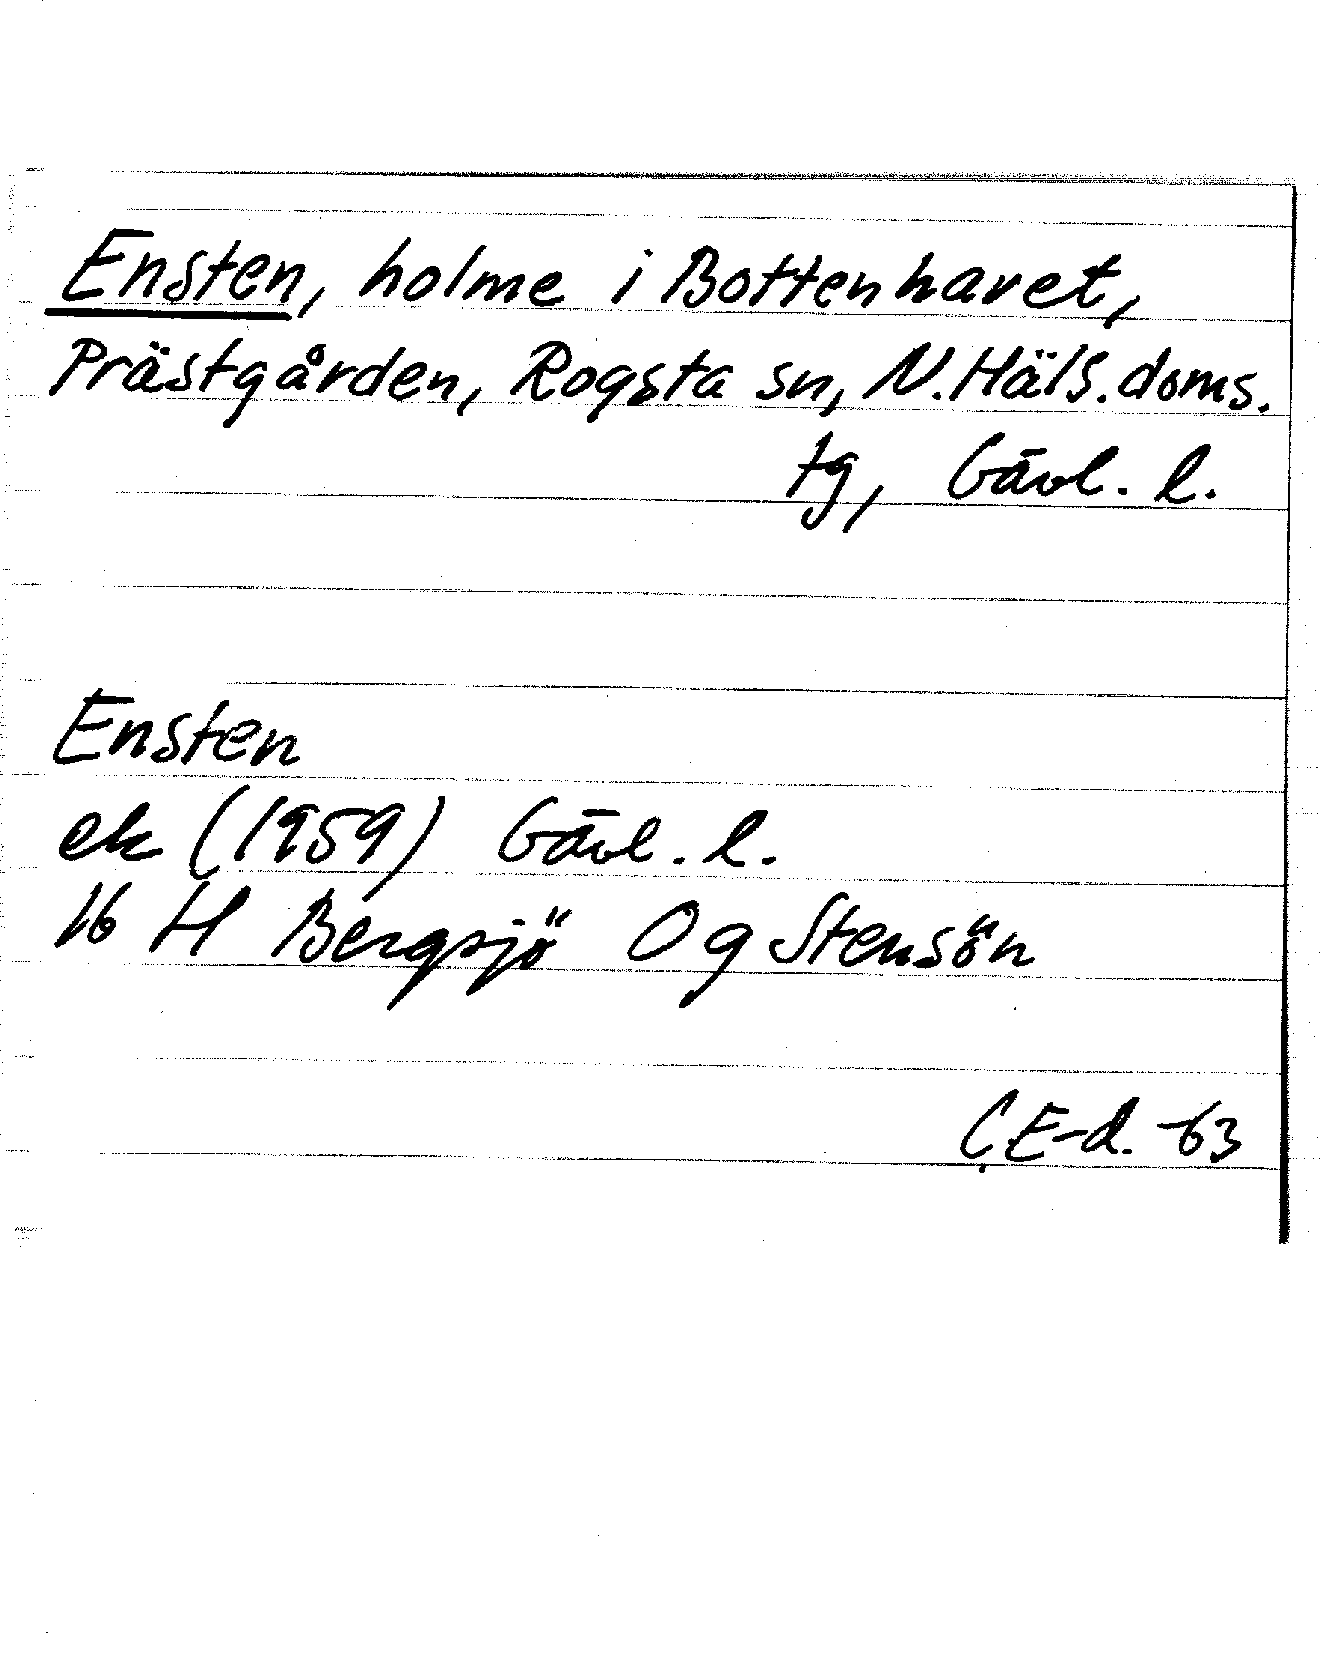 Ensten, holme i Bottenhavet,
Prästgården, Rogsta sn, N.Häls.doms.
tg, Gävl. l.
Ensten
ek (1959) Gävl. l.
16 H Bergsjö Og Stensön
C.E-d. -63